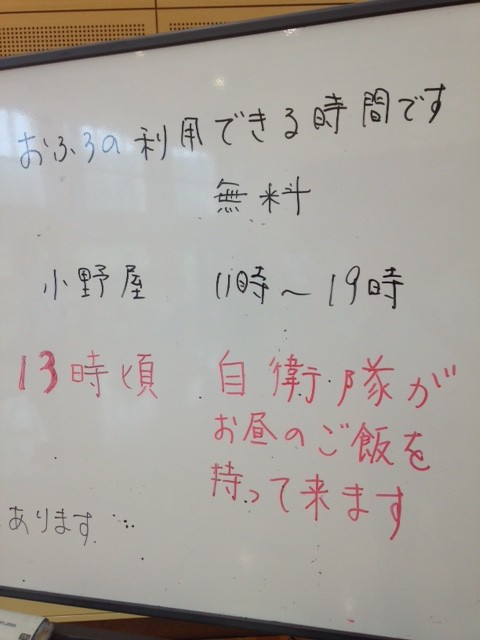 おふろの利用できる時間です
無料
小野屋 11時～19時
13時頃 自衛隊が
お昼のご飯を
持って来ます
あります